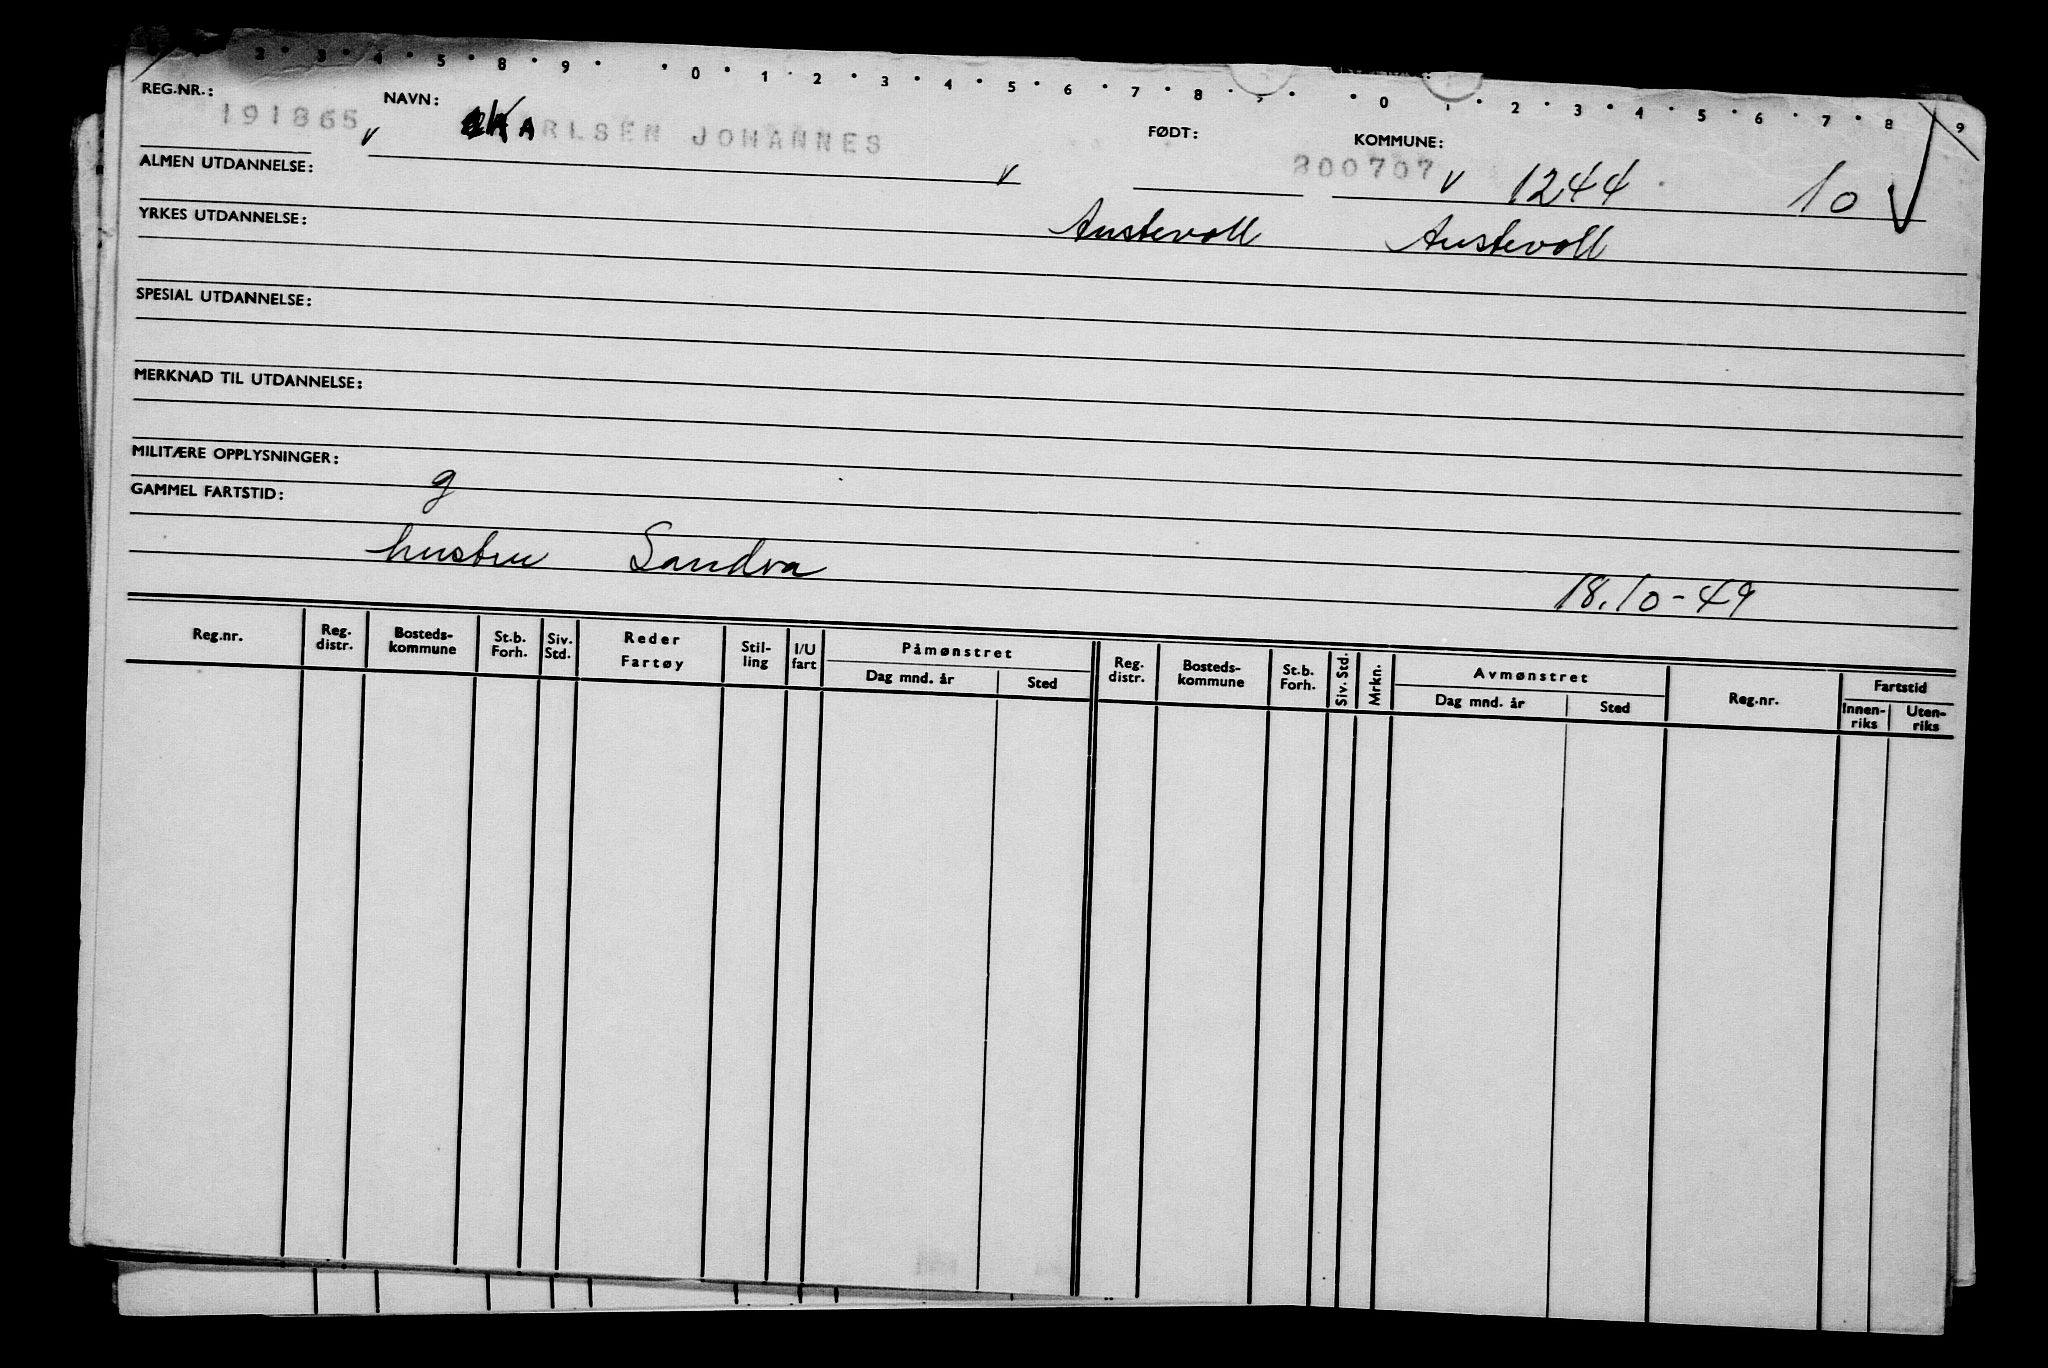 2 · 3 · 4 · 5 · 8 · 9 · · 0 · 1 · 2 · 3 · 4 · 5 · 6 · 7 · 8 · · · 0 · 2 · 3 · 4 · 5 · 6 · 7 · 8 9
REG.NR.: 191865 NAVN: KARLSEN JOHANNES FØDT: 300707 KOMMUNE: v 1244 10
ALMEN UTDANNELSE:
YRKES UTDANNELSE: Austevoll Austevoll
SPESIAL UTDANNELSE:
MERKNAD TIL UTDANNELSE:
MILITÆRE OPPLYSNINGER:
GAMMEL FARTSTID: g
hustru Sandra 18.10-49
Reg.nr. Reg. distr. Bosteds- kommune St.b. Forh. Siv. Std. Reder Fartøy Stil- ling I/U fart Påmønstret Dag mnd. år Sted Reg. distr. Bosteds- kommune St.b. Forh. Siv. Std. Mrkn. Avmønstret Dag mnd. år Sted Reg.nr. Fartstid Innen- riks Uten- riks